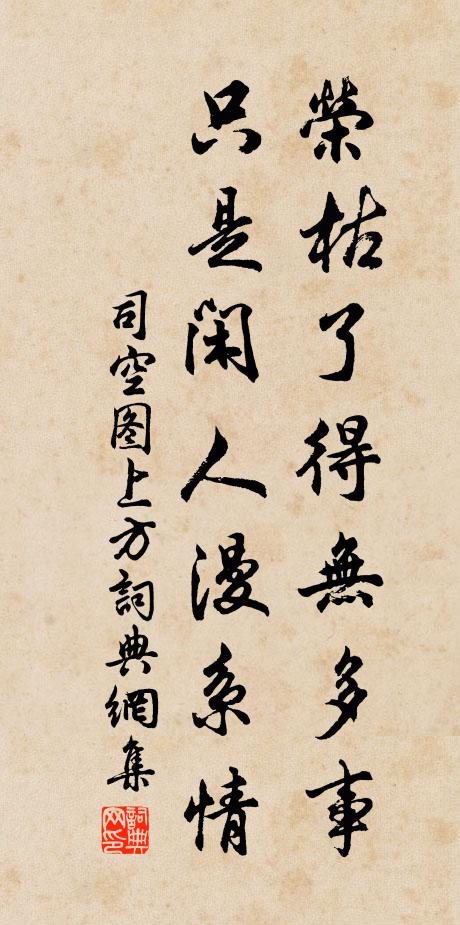 榮枯了得無多事
只是閑人漫系情
司空图上方詞典網集
詞典
网印